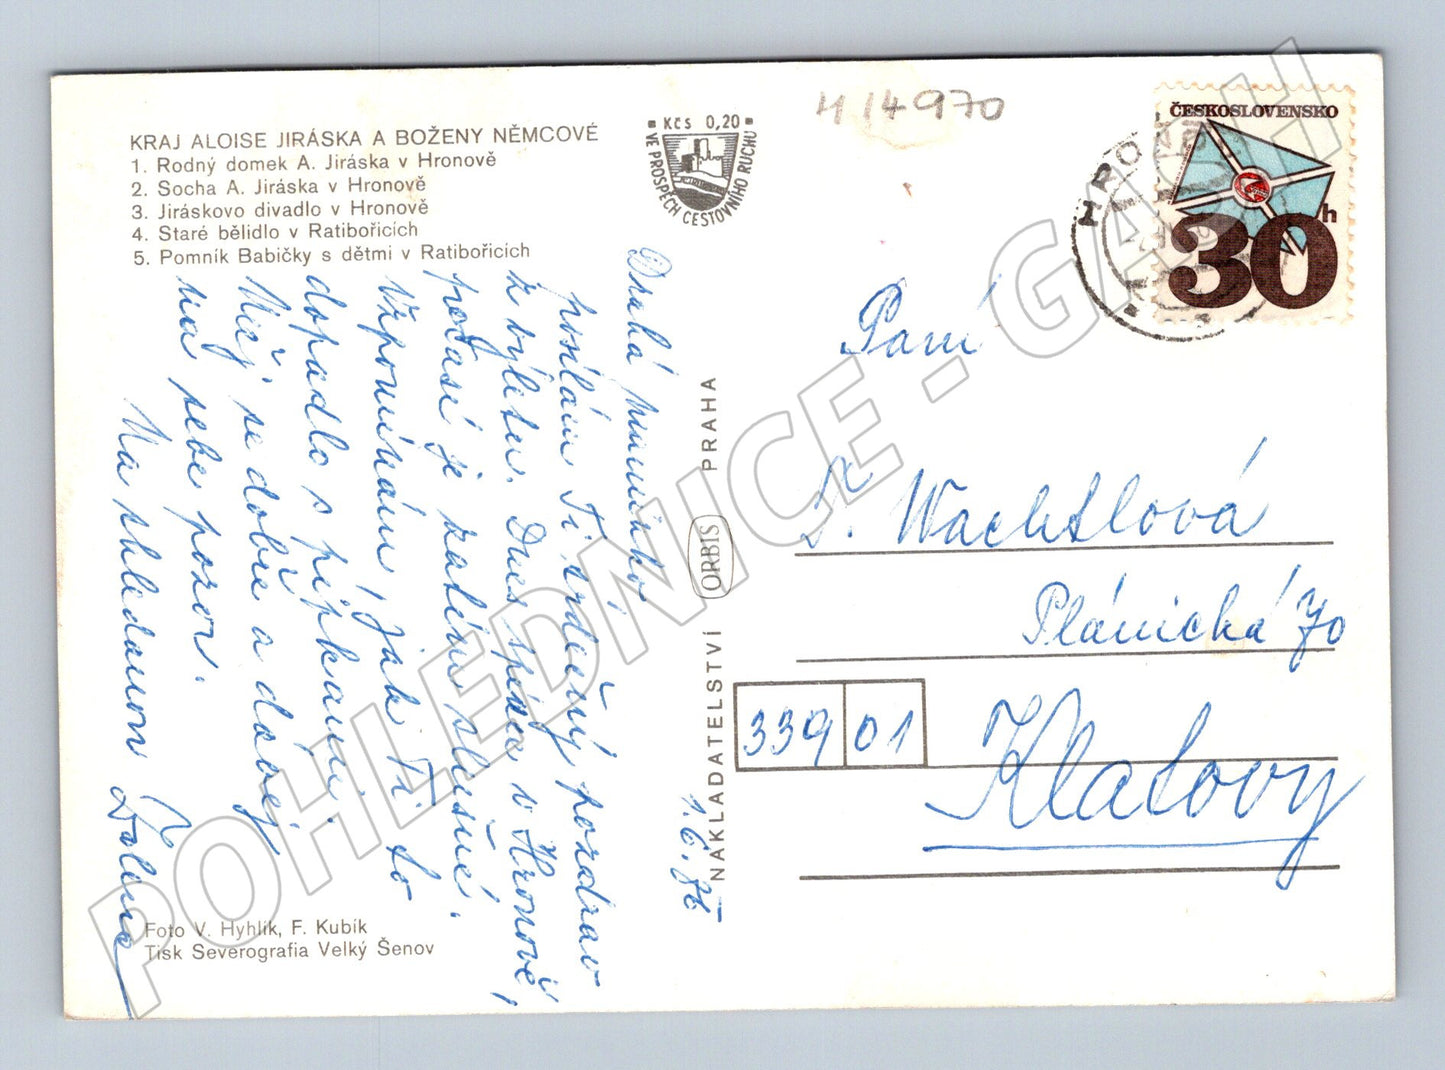 KRAJ ALOISE JIRÁSKA A BOŽENY NĚMCOVÉ
1. Rodný domek A. Jiráska v Hronově
2. Socha A. Jiráska v Hronově
3. Jiráskovo divadlo v Hronově
4. Staré bělidlo v Ratibořicích
5. Pomník Babičky s dětmi v Ratibořicích
Kčs 0,20
VE PROSPĚCH CESTOVNÍHO RUCHU
H 14970
ČESKOSLOVENSKO
30h
HRO
Drahá maminko!
posílám Ti srdečný pozdrav
z výletu. Dnes spíme v Hronově,
počasí je zatím slušné.
Vzpomínám, jak Ti to
dopadlo s píchaním.
Měj se dobře a dávej
na sebe pozor.
Na shledanou
1.6.86
NAKLADATELSTVÍ ORBIS PRAHA
Paní
Wachtlová
Plánická 70
339 01
Klatovy
Foto V. Hyhlík, F. Kubík
Tisk Severografia Velký Šenov
POHLEDNICE - GASH